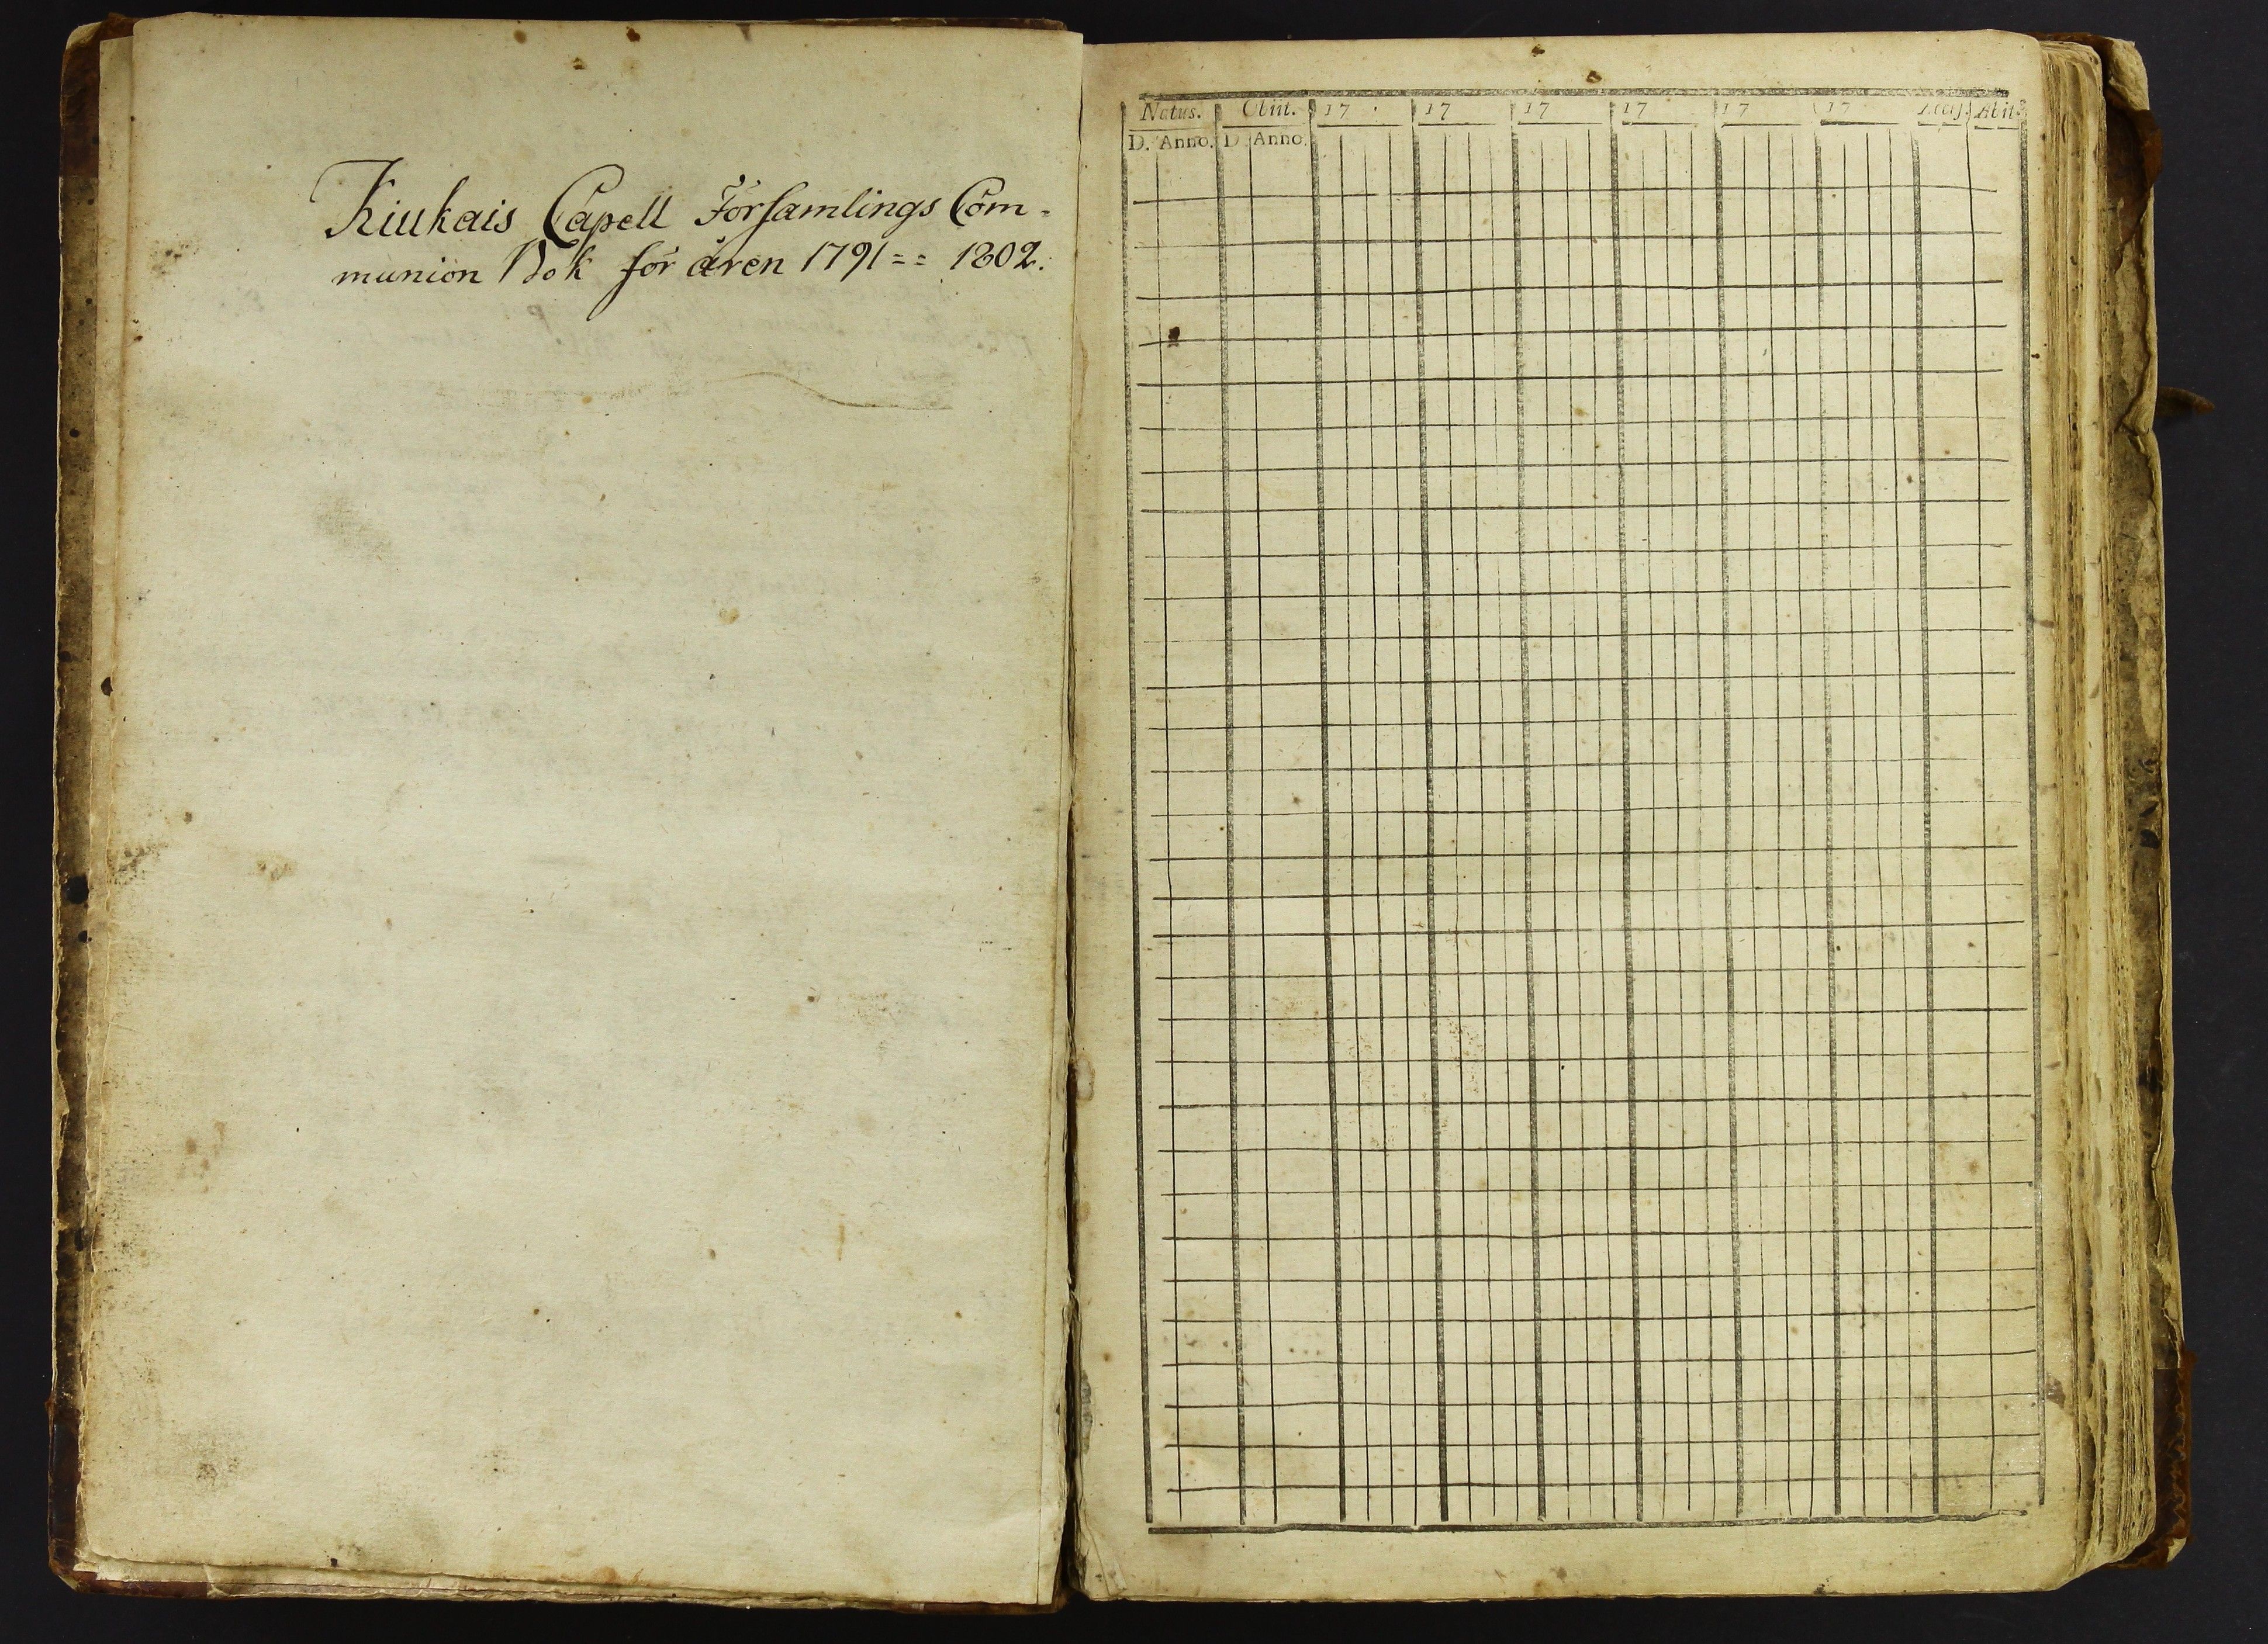 Kiukais Capell Församlings Com-
munion Bok för åren 1791 == 1802.
Natus. Obiit. 17 17 17 17 17 17 Access. Abiit.
D. Anno. D. Anno.